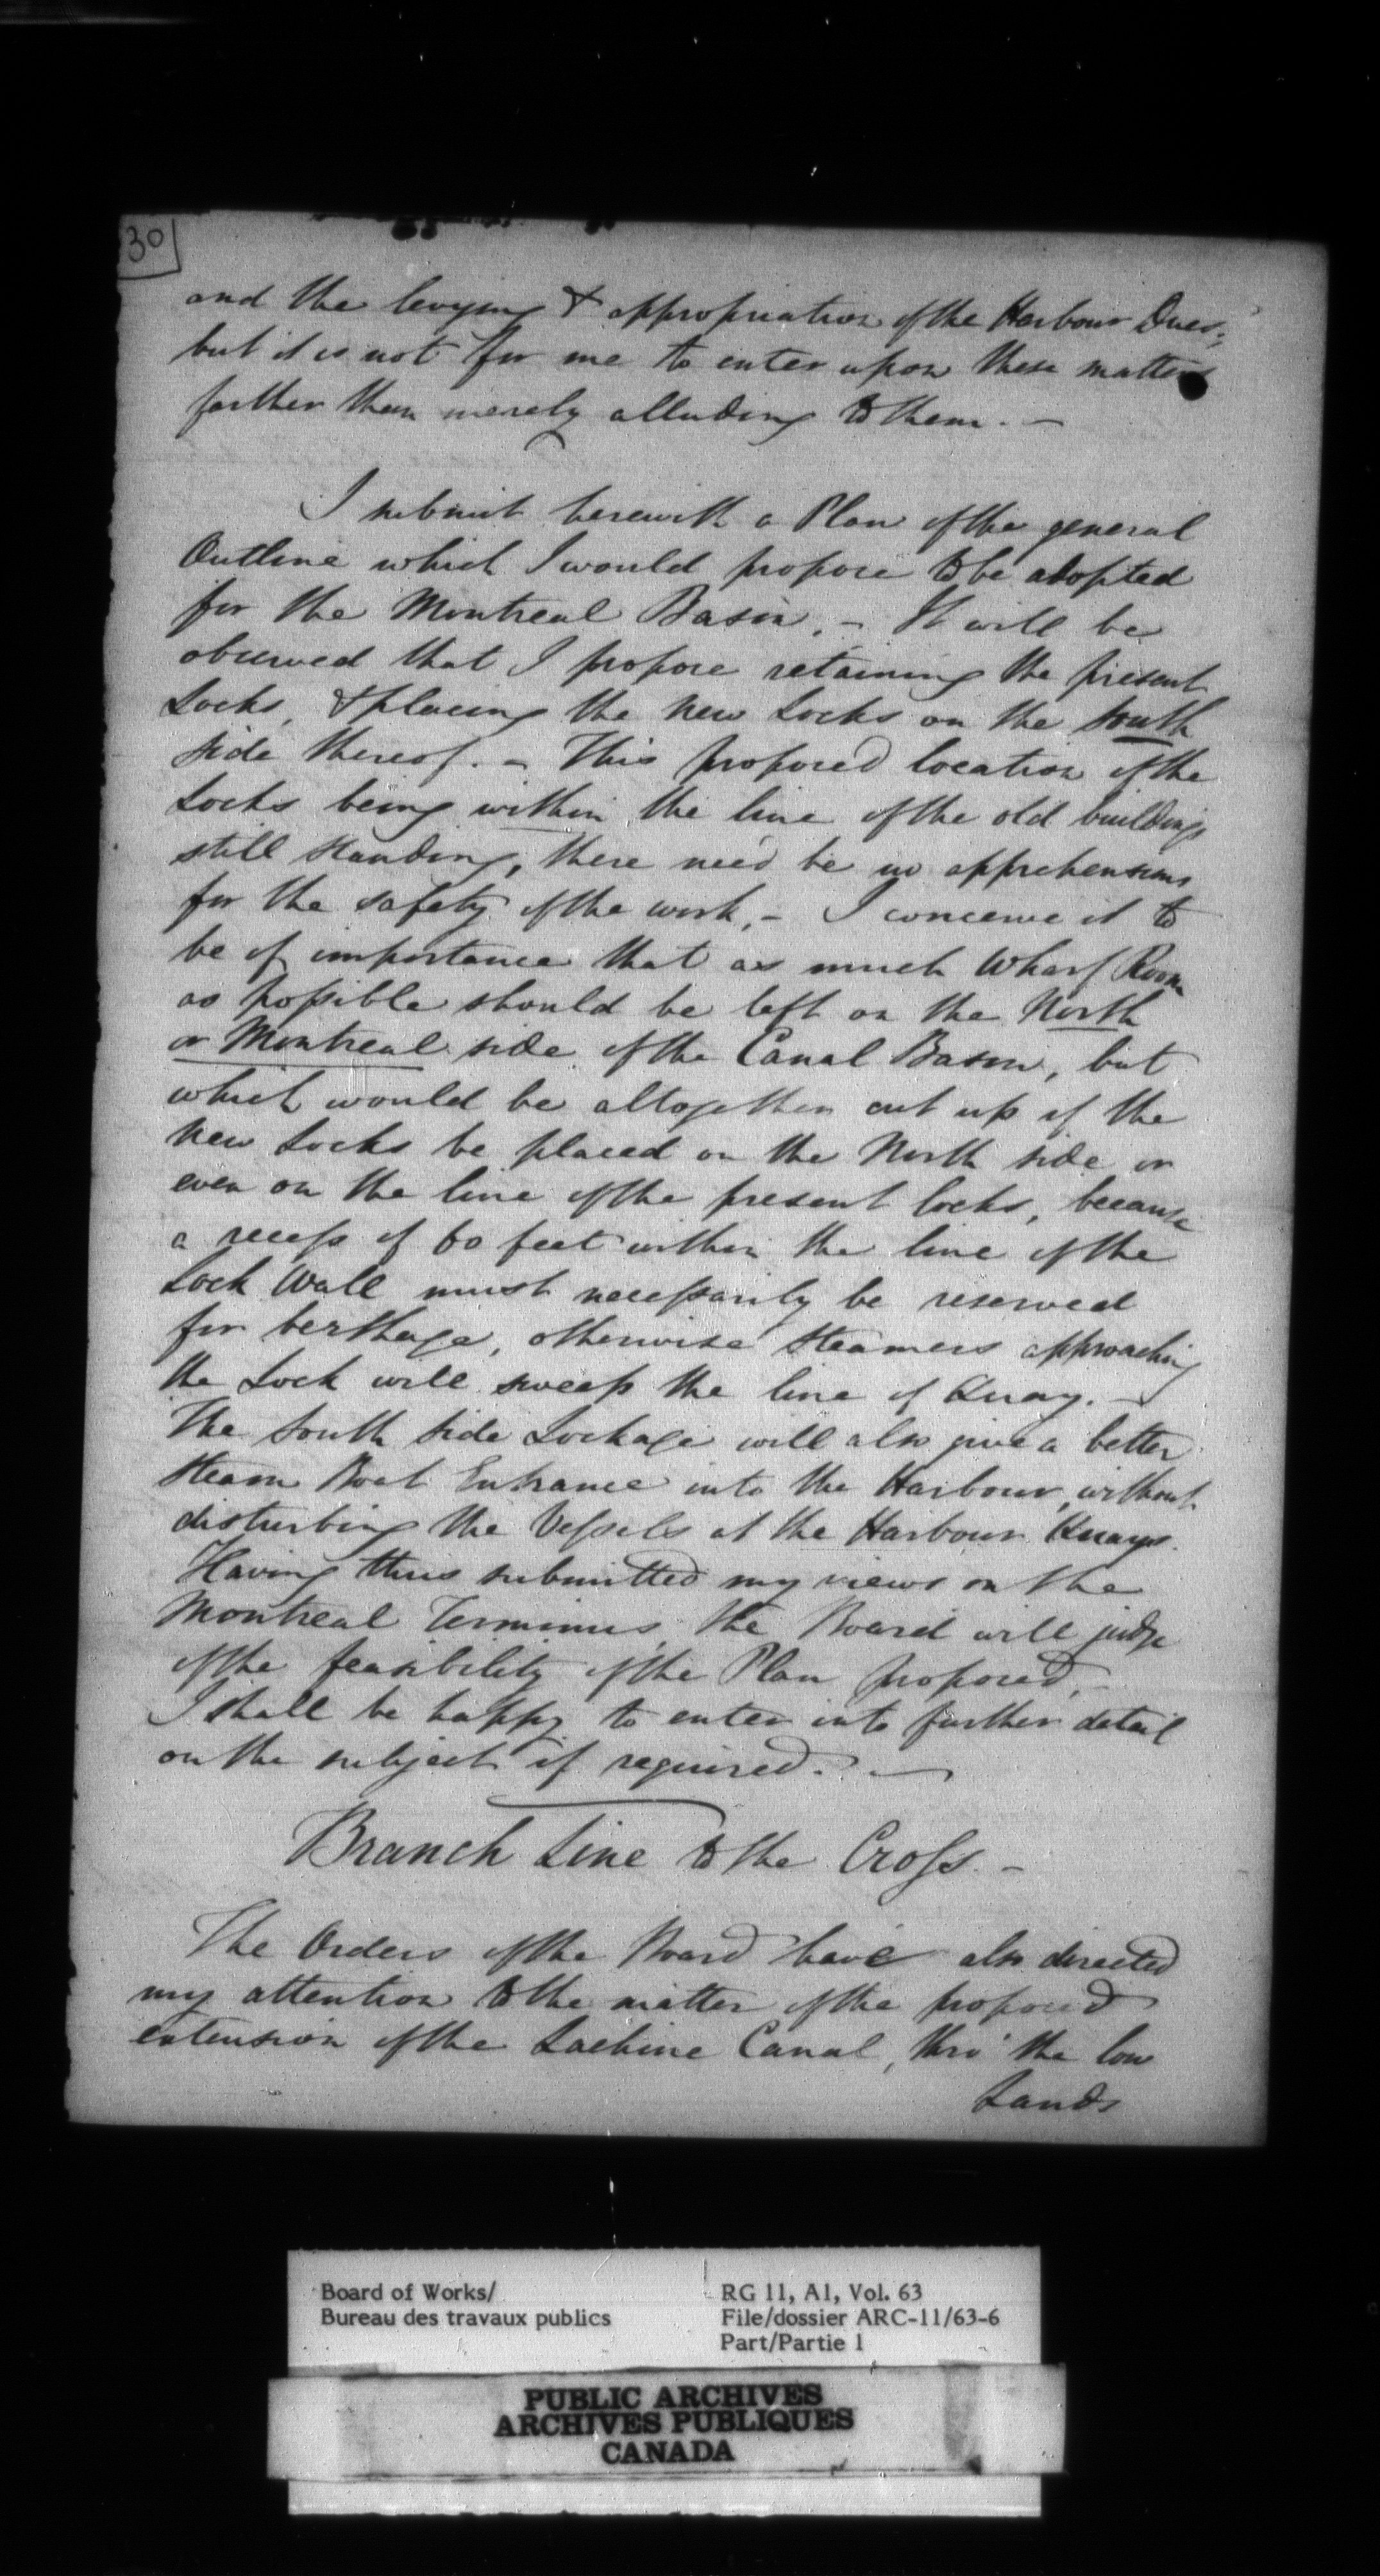 30
and the levying & appropriation of the Harbour Dues;
but it is not for me to enter upon these matters
farther than merely alluding to them. —
I submit herewith a Plan of the general
Outline which I would propose to be adopted
for the Montreal Basin. — It will be
observed that I propose retaining the present
Locks, & placing the New Locks on the South
side thereof. — This proposed location of the
Locks being within the line of the old buildings
still standing, there need be no apprehensions
for the safety of the work. — I conceive it to
be of importance that as much Wharf Room
as possible should be left on the North
or Montreal side of the Canal Basin, but
which would be altogether cut up if the
New Locks be placed on the North side or
even on the line of the present locks, because
a recess of 60 feet within the line of the
Lock Wall must necessarily be reserved
for berthage, otherwise Steamers approaching
the Lock will sweep the line of Quay. —
The South side Lockage will also give a better
Steam Boat Entrance into the Harbour, without
disturbing the Vessels at the Harbour Quays.
Having thus submitted my views on the
Montreal Terminus, the Board will judge
of the feasibility of the Plan proposed, —
I shall be happy to enter into further detail
on the subject if required. —
Branch Line to the Cross. —
The Orders of the Board have also directed
my attention to the matter of the proposed
extension of the Lachine Canal, thro' the low
Lands
Board of Works/
Bureau des travaux publics
RG 11, A1, Vol. 63
File/dossier ARC-11/63-6
Part/Partie 1
PUBLIC ARCHIVES
ARCHIVES PUBLIQUES
CANADA